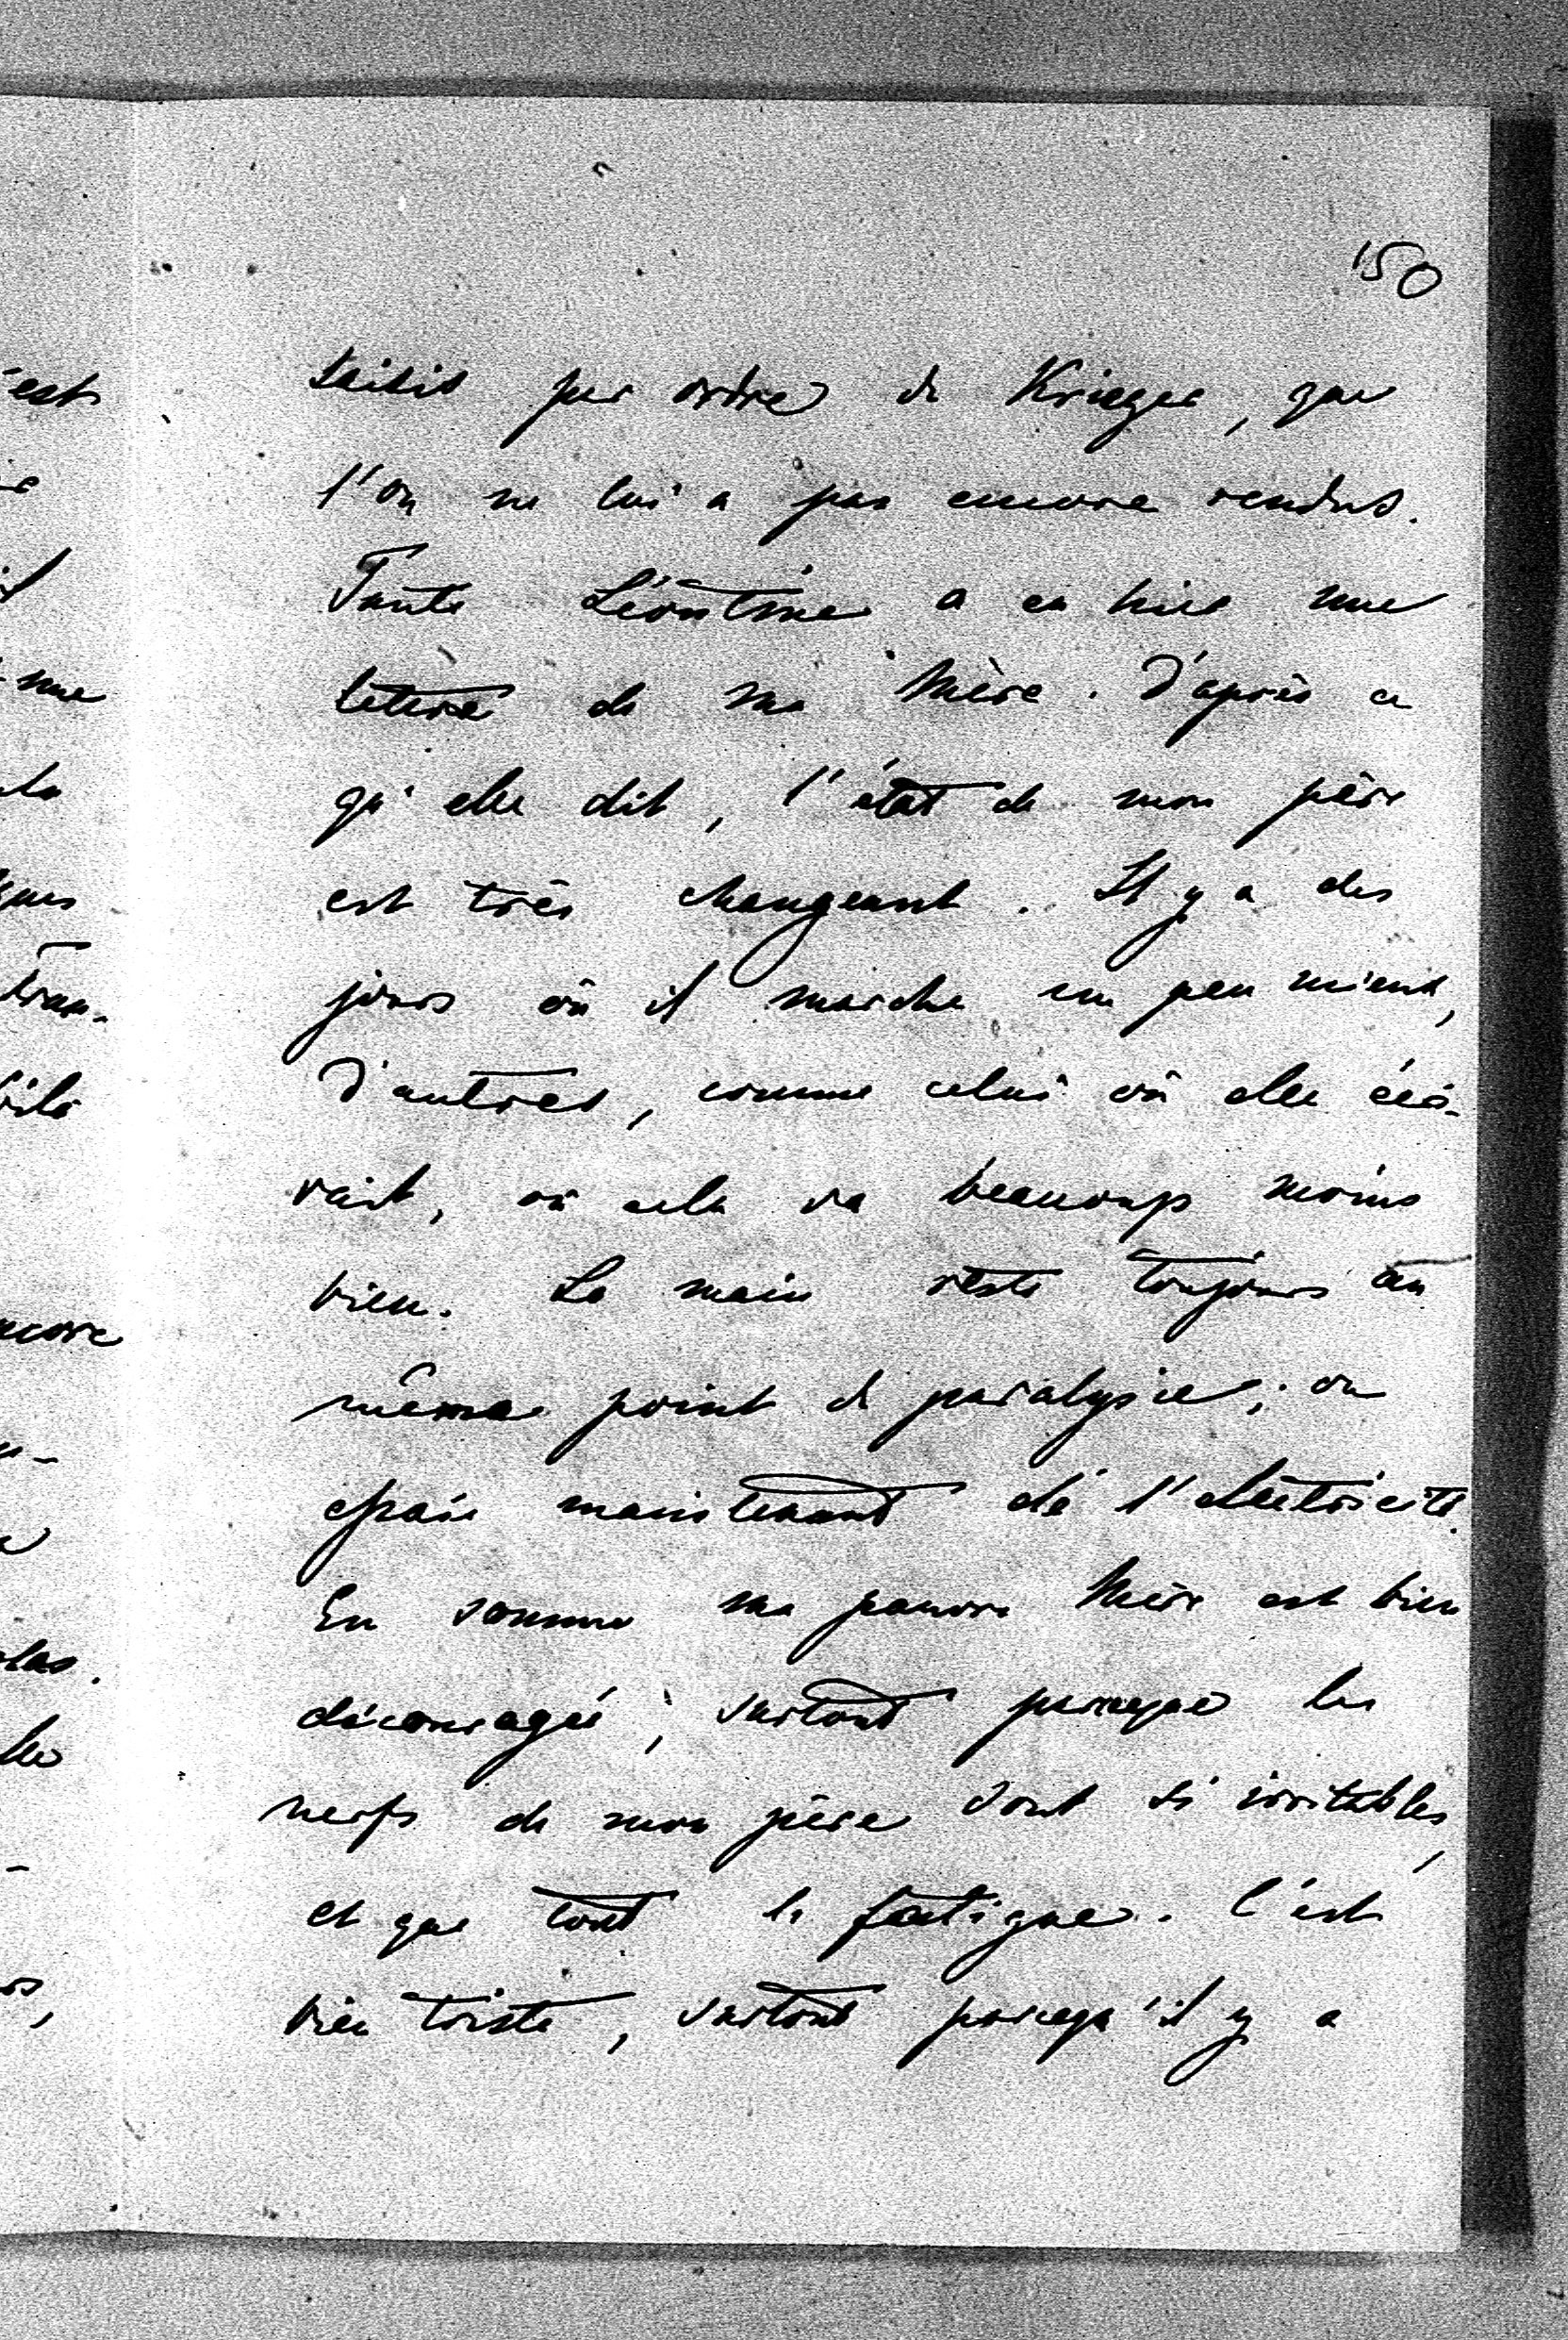 150
saisis par ordre de Krieger, que
l'on ne lui a pas encore rendus.
Tante Léontine a eu hier une
lettre de ma Mère. D'après ce
qu'elle dit, l'état de mon père
est très changeant. Il y a des
jours où il marche un peu mieux,
d'autres, comme celui où elle écri-
vait, où cela va beaucoup moins
bien. La main reste toujours au
même point de paralysie; on
essaie maintenant de l'électricité.
En somme ma pauvre Mère est bien
découragée, surtout parceque les
nerfs de mon père sont si irritables,
et que tout le fatigue. C'est
bien triste, surtout parcequ'il y a
est
me
la
encore